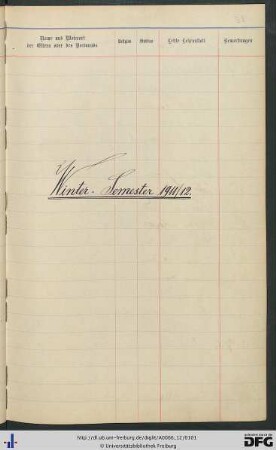 Name und Wohnort
der Eltern oder des Vormunds
Religion
Letzte Lehranstalt
Bemerkungen
Winter-Semester 1911/12.
http://dl.ub.uni-freiburg.de/diglit/A0066_12/0101
© Universitätsbibliothek Freiburg
DFG